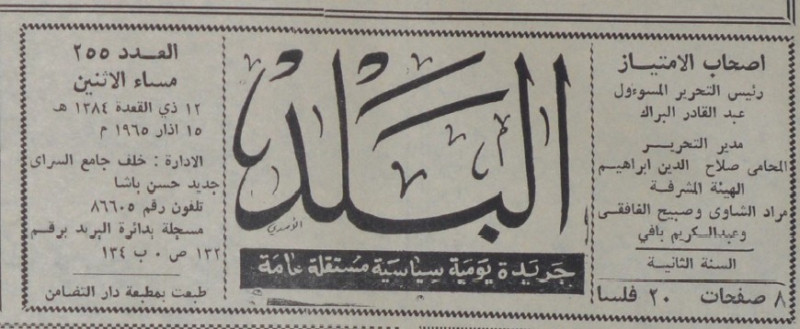 اصحاب الامتياز
رئيس التحرير المسوءول
عبد القادر البراك
مدير التحرير
المحامى صلاح الدين ابراهيم
الهيئة المشرفة
مراد الشاوى وصبيح الغافقى
وعبدالكريم بافي
السنة الثانية
٨ صفحات ٢٠ فلسا
البلد
جريدة يومية سياسية مستقلة عامة
العدد ٢٥٥
مساء الاثنين
١٢ ذي القعدة ١٣٨٤ هـ
١٥ اذار ١٩٦٥ م
الادارة : خلف جامع السراى
جديد حسن باشا
تلفون رقم ٨٦٦٠٥
مسجلة بدائرة البريد برقم
١٣٢ ص ٠ ب ١٣٤
طبعت بمطبعة دار التضامن